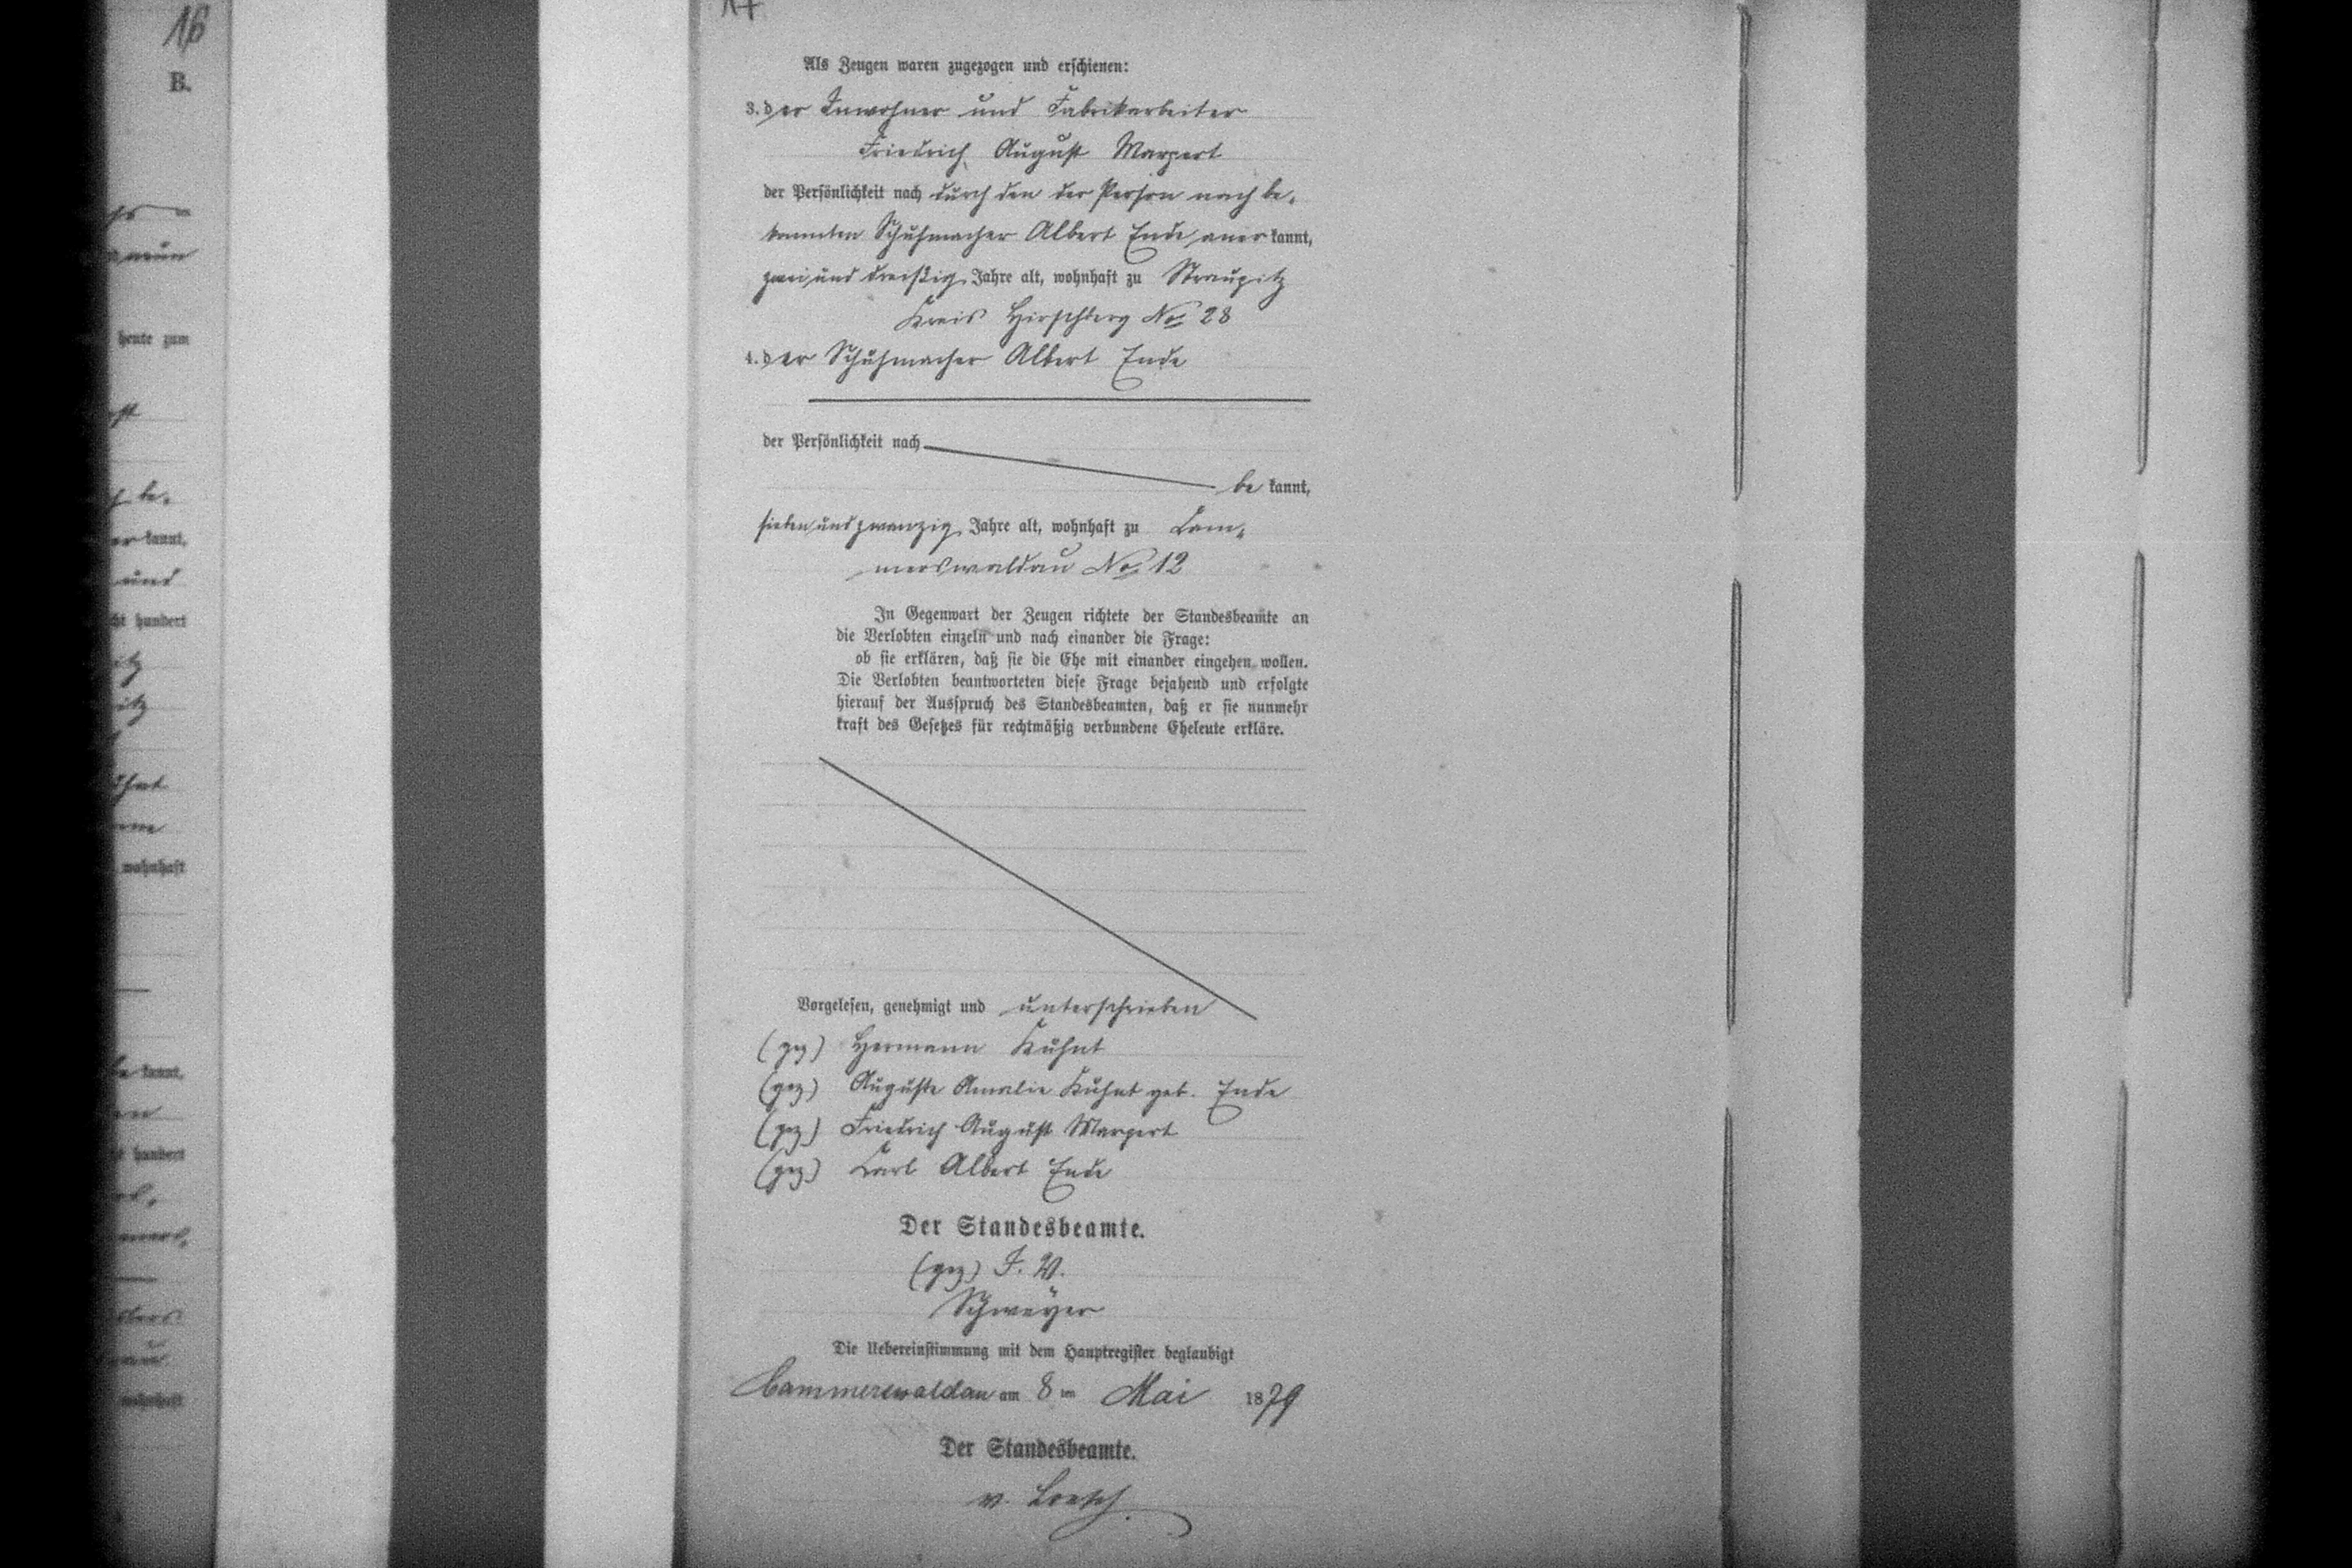 16
B.
neun
heute zum
be,
kannt,
und
hundert
wohnhaft
kannt,
hundert
wohnhaft
17
Als Zeugen waren zugezogen und erschienen:
3. der Inwohner und Fabrikarbeiter
Friedrich August Marpert
der Persönlichkeit nach durch den der Person nach be,
kannten Schuhmacher Albert Ende, anerkannt,
zwei und dreißig Jahre alt, wohnhaft zu Straupitz
Kreis Hirschberg No 28
4. der Schuhmacher Albert Ende
der Persönlichkeit nach
bekannt,
sieben und zwanzig Jahre alt, wohnhaft zu Cam,
merswaldau No 12
In Gegenwart der Zeugen richtete der Standesbeamte an
die Verlobten einzeln und nach einander die Frage:
ob sie erklären, daß sie die Ehe mit einander eingehen wollen.
Die Verlobten beantworteten diese Frage bejahend und erfolgte
hierauf der Ausspruch des Standesbeamten, daß er sie nunmehr
kraft des Gesetzes für rechtmäßig verbundene Eheleute erkläre.
Vorgelesen, genehmigt und unterschrieben
(gez) Hermann Kuhnt
(gez) Auguste Amalie Kuhnt geb. Ende
(gez) Friedrich August Marpert
(gez) Carl Albert Ende
Der Standesbeamte.
(gez) I. V.
Schweyer
Die Uebereinstimmung mit dem Hauptregister beglaubigt
Cammerswaldau am 8 ten Mai 1879
Der Standesbeamte.
v. Loesch.